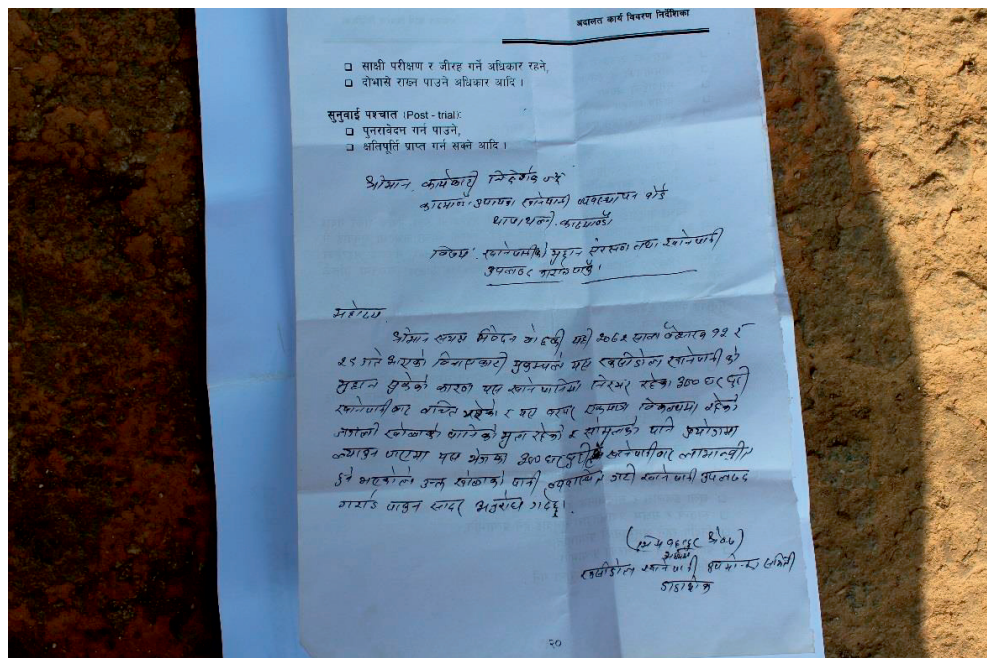 अदालत कार्य विवरण निर्देशिका
❑ साक्षी परीक्षण र जीरह गर्ने अधिकार रहने,
❑ दोभासे राख्न पाउने अधिकार आदि ।
सुनुवाई पश्चात (Post - trial):
❑ पुनरावेदन गर्न पाउने,
❑ क्षतिपूर्ति प्राप्त गर्न सक्ने आदि ।
श्रीमान् कार्यकारी निर्देशक ज्यू
काठमाडौं उपत्यका खानेपानी व्यवस्थापन बोर्ड
थापाथली, काठमाडौं
विषय: खानेपानीको मुहान संरक्षण तथा खानेपानी
उपलब्ध गराई पाउँ।
महोदय
श्रीमान समक्ष निवेदन यो छकी यही २०७२ साल वैशाख १२ र
२९ गते भएको विनाशकारी भुकम्पले यस खानेपानी को
मुहान सुकेको कारण यस खानेपानीमा निरभर रहेका ३०० घर धुरी
खानेपानीबाट वञ्चित भएको र यस एकमात्र विकल्पमा रहेको
खोलाको पानीको मुल रहेको र पानि प्रयोगमा
ल्याउन पाएमा यस क्षेत्रका ३०० घर धुरी खानेपानीबाट लाभान्वीत
हुने भएकोले उक्त खोलाको पानी व्यवस्थित गरी खानेपानी उपलब्ध
गराई पाउन सादर अनुरोध गर्दछु।
बहादुर श्रेष्ठ)
अध्यक्ष
खानेपानी उपभोक्ता समिती
२०